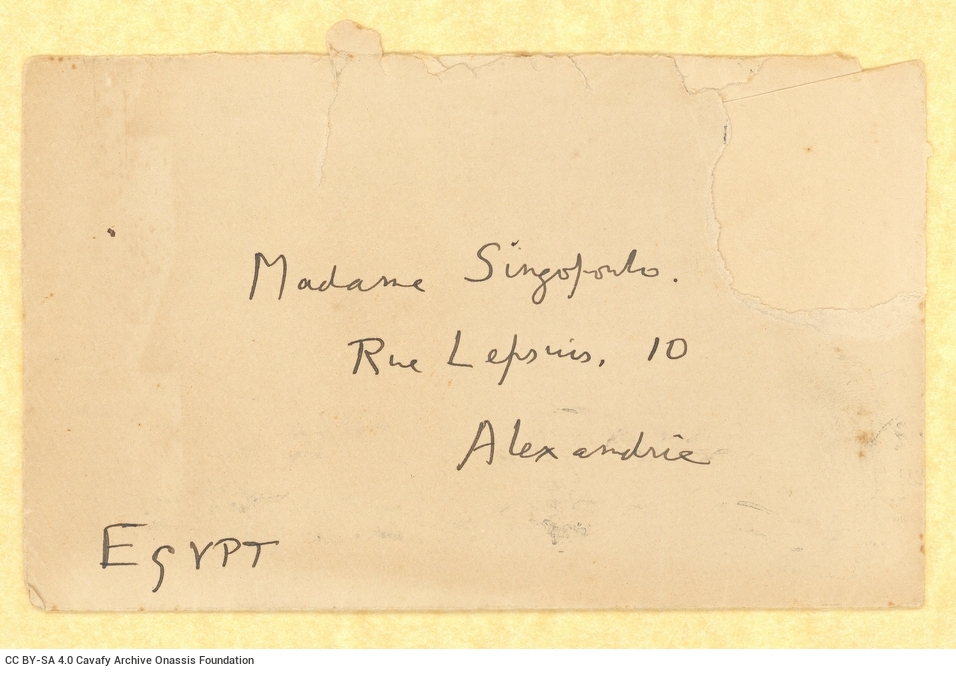 Madame Singopoulo.
Rue Lepsius, 10
Alexandrie
EGYPT
CC BY-SA 4.0 Cavafy Archive Onassis Foundation